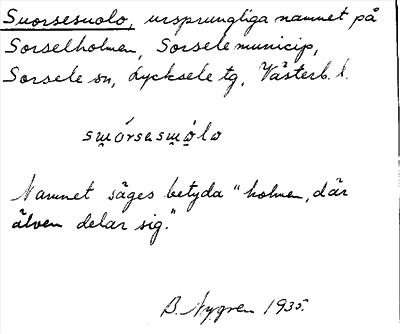 Suorsesuolo, ursprungliga namnet på
Sorselholmen, Sorsele municip,
Sorsele sn, Lycksele tg, Västerb. l.
su̯órsasu̯ò̤lo
Namnet säges betyda "holmen, där
älven delar sig."
B. Nygren 1935.